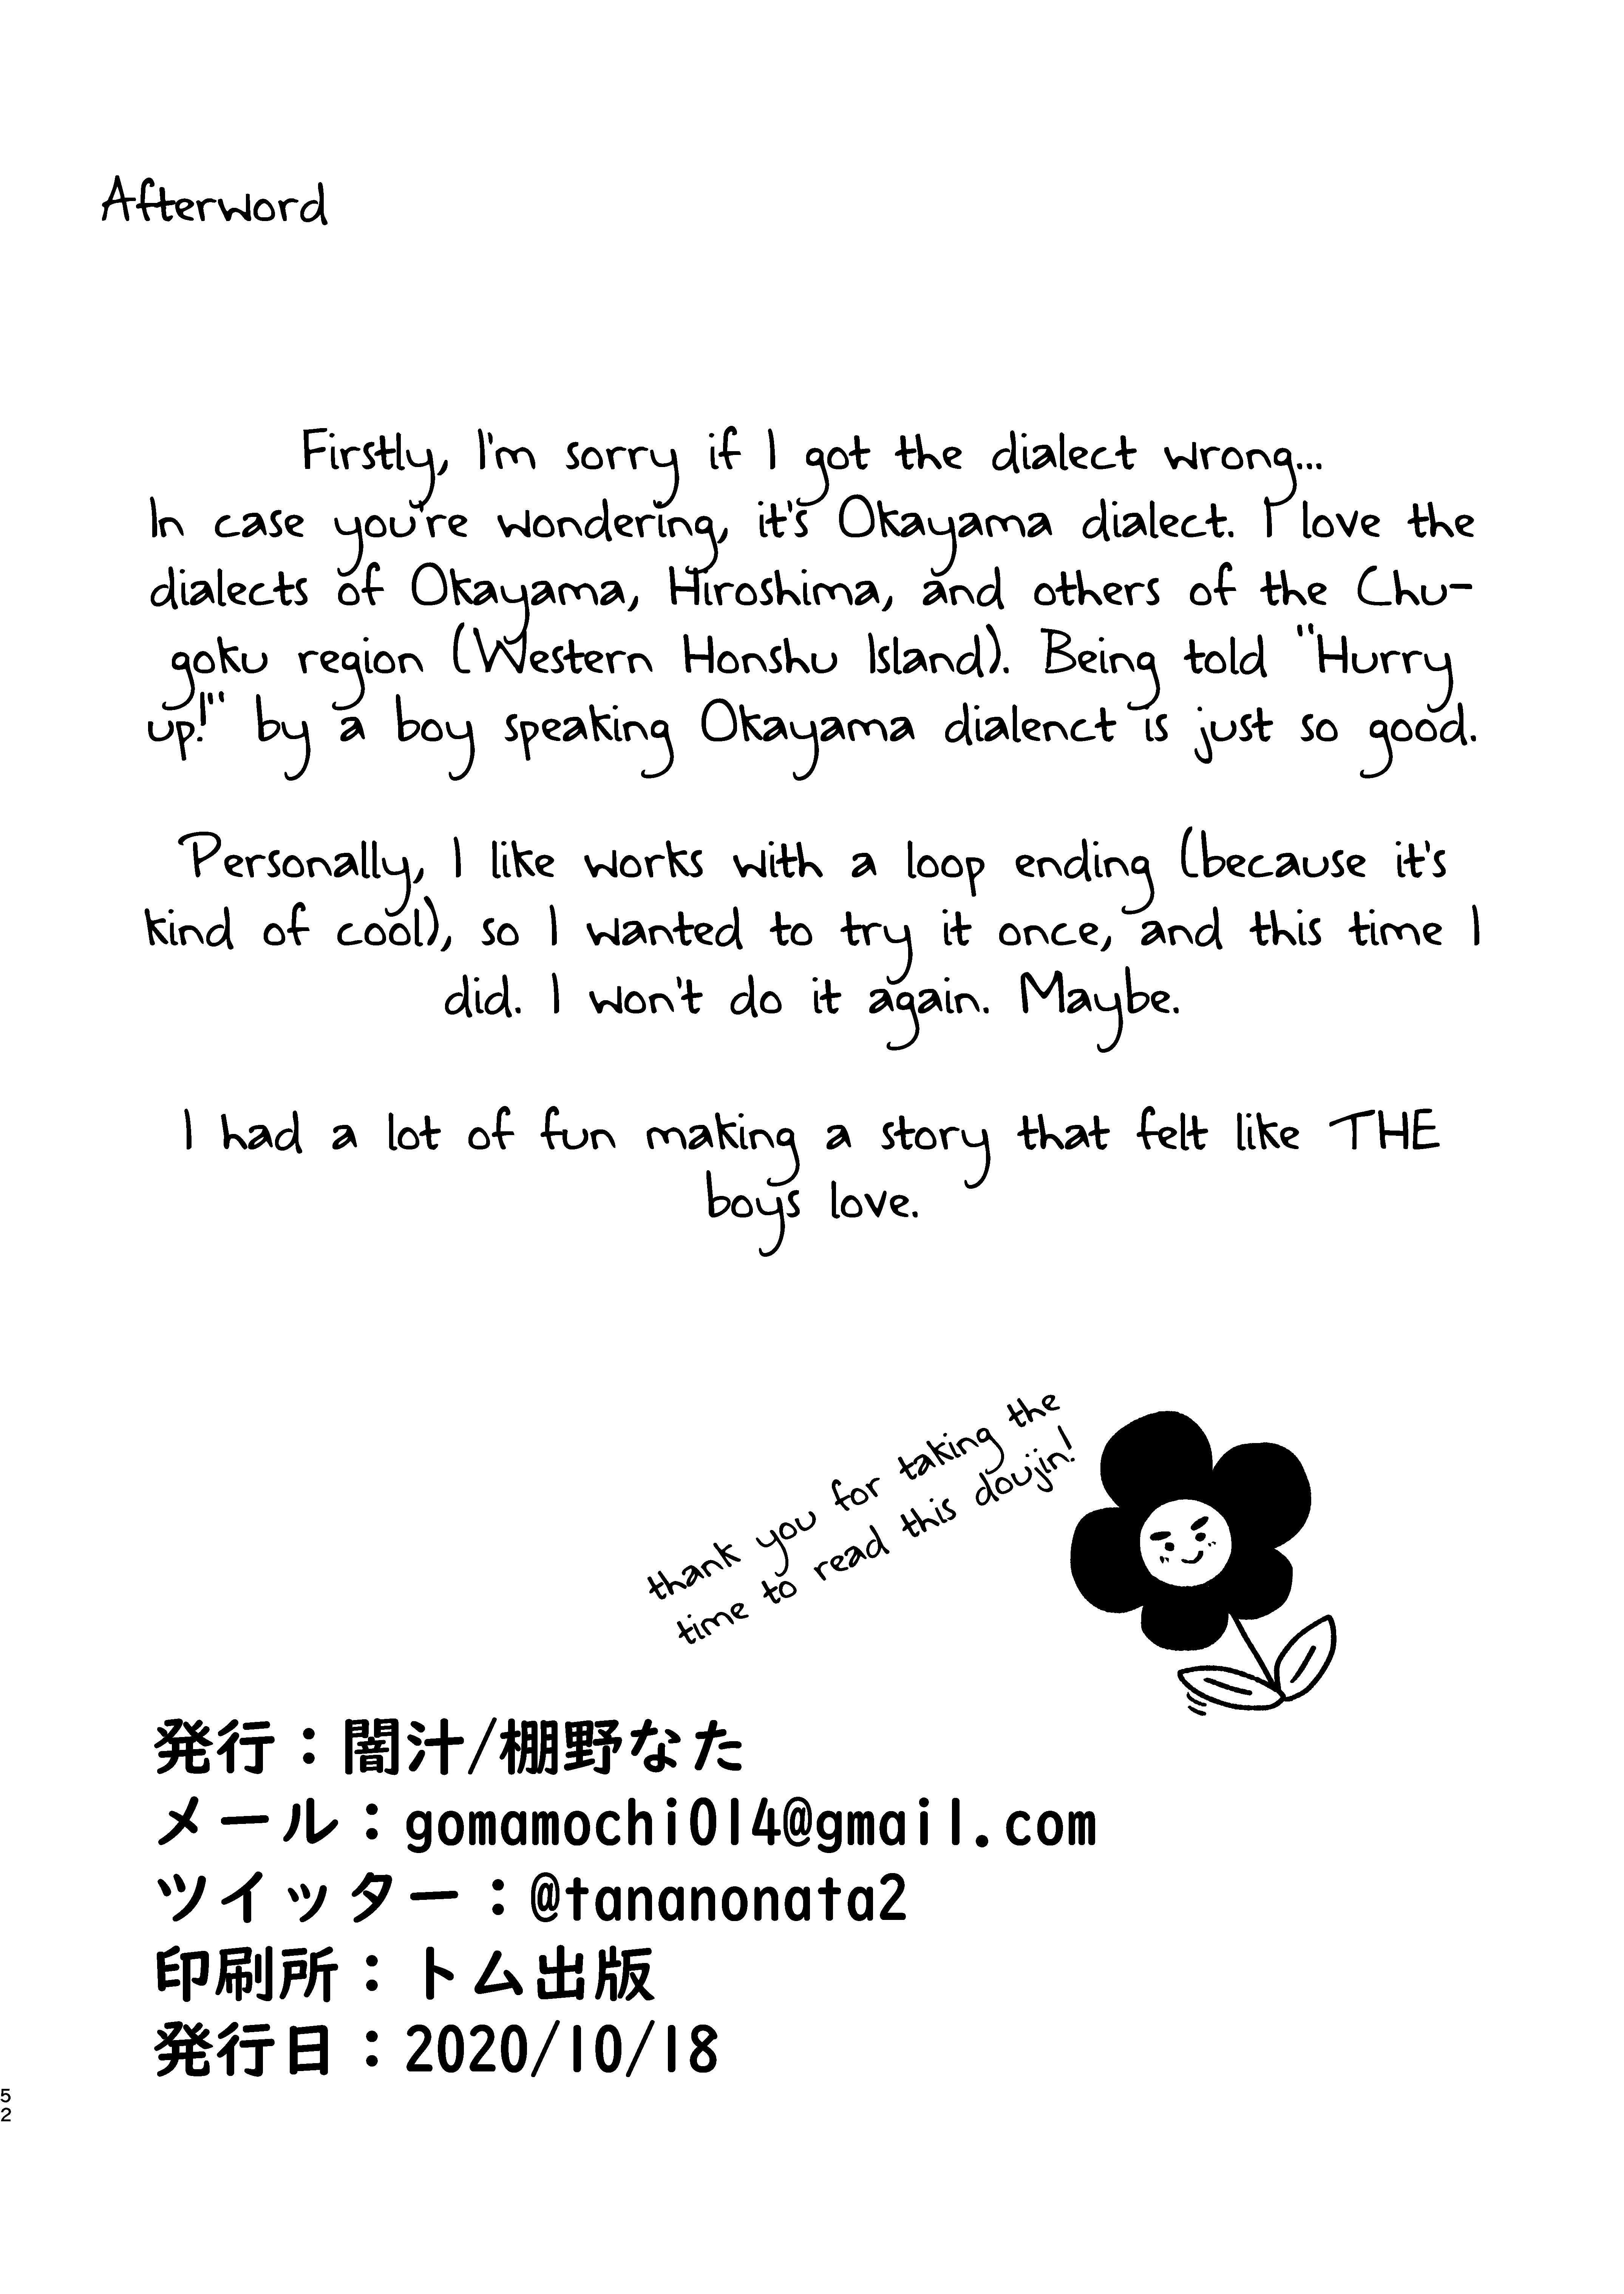 Afterword
Firstly, I'm sorry if I got the dialect wrong...
In case you're wondering, it's Okayama dialect. I love the
dialects of Okayama, Hiroshima, and others of the Chu-
goku region (Western Honshu Island). Being told "Hurry
up!" by a boy speaking Okayama dialenct is just so good.
Personally, I like works with a loop ending (because it's
kind of cool), so I wanted to try it once, and this time I
did. I won't do it again. Maybe.
I had a lot of fun making a story that felt like THE
boys love.
thank you for taking the
time to read this doujin!
発行：闇汁/棚野なた
メール：gomamochi014@gmail.com
ツイッター：@tananonata2
印刷所：トム出版
発行日：2020/10/18
52